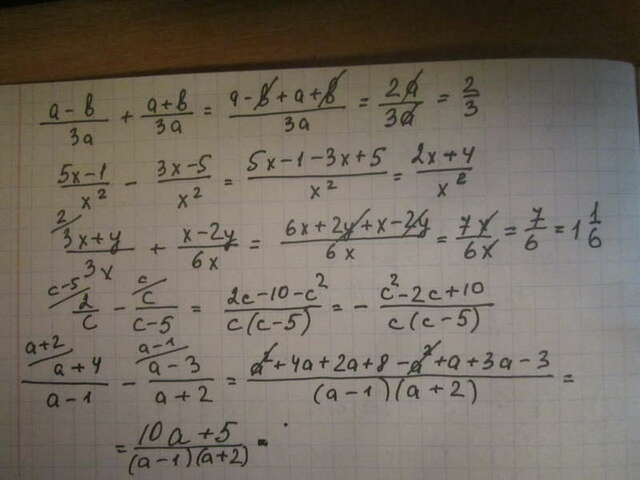 (a-b)/(3a) + (a+b)/(3a) = (a-b+a+b)/(3a) = (2a)/(3a) = 2/3
(5x-1)/(x²) - (3x-5)/(x²) = (5x-1-3x+5)/(x²) = (2x+4)/(x²)
2/ (3x+y)/(3x) + (x-2y)/(6x) = (6x+2y+x-2y)/(6x) = (7x)/(6x) = 7/6 = 1 1/6
c-5/ 2/c - c/ c/(c-5) = (2c-10-c²)/(c(c-5)) = - (c²-2c+10)/(c(c-5))
a+2/ (a+4)/(a-1) - a-1/ (a-3)/(a+2) = (a²+4a+2a+8-a²+a+3a-3)/((a-1)(a+2)) =
= (10a+5)/((a-1)(a+2)) -